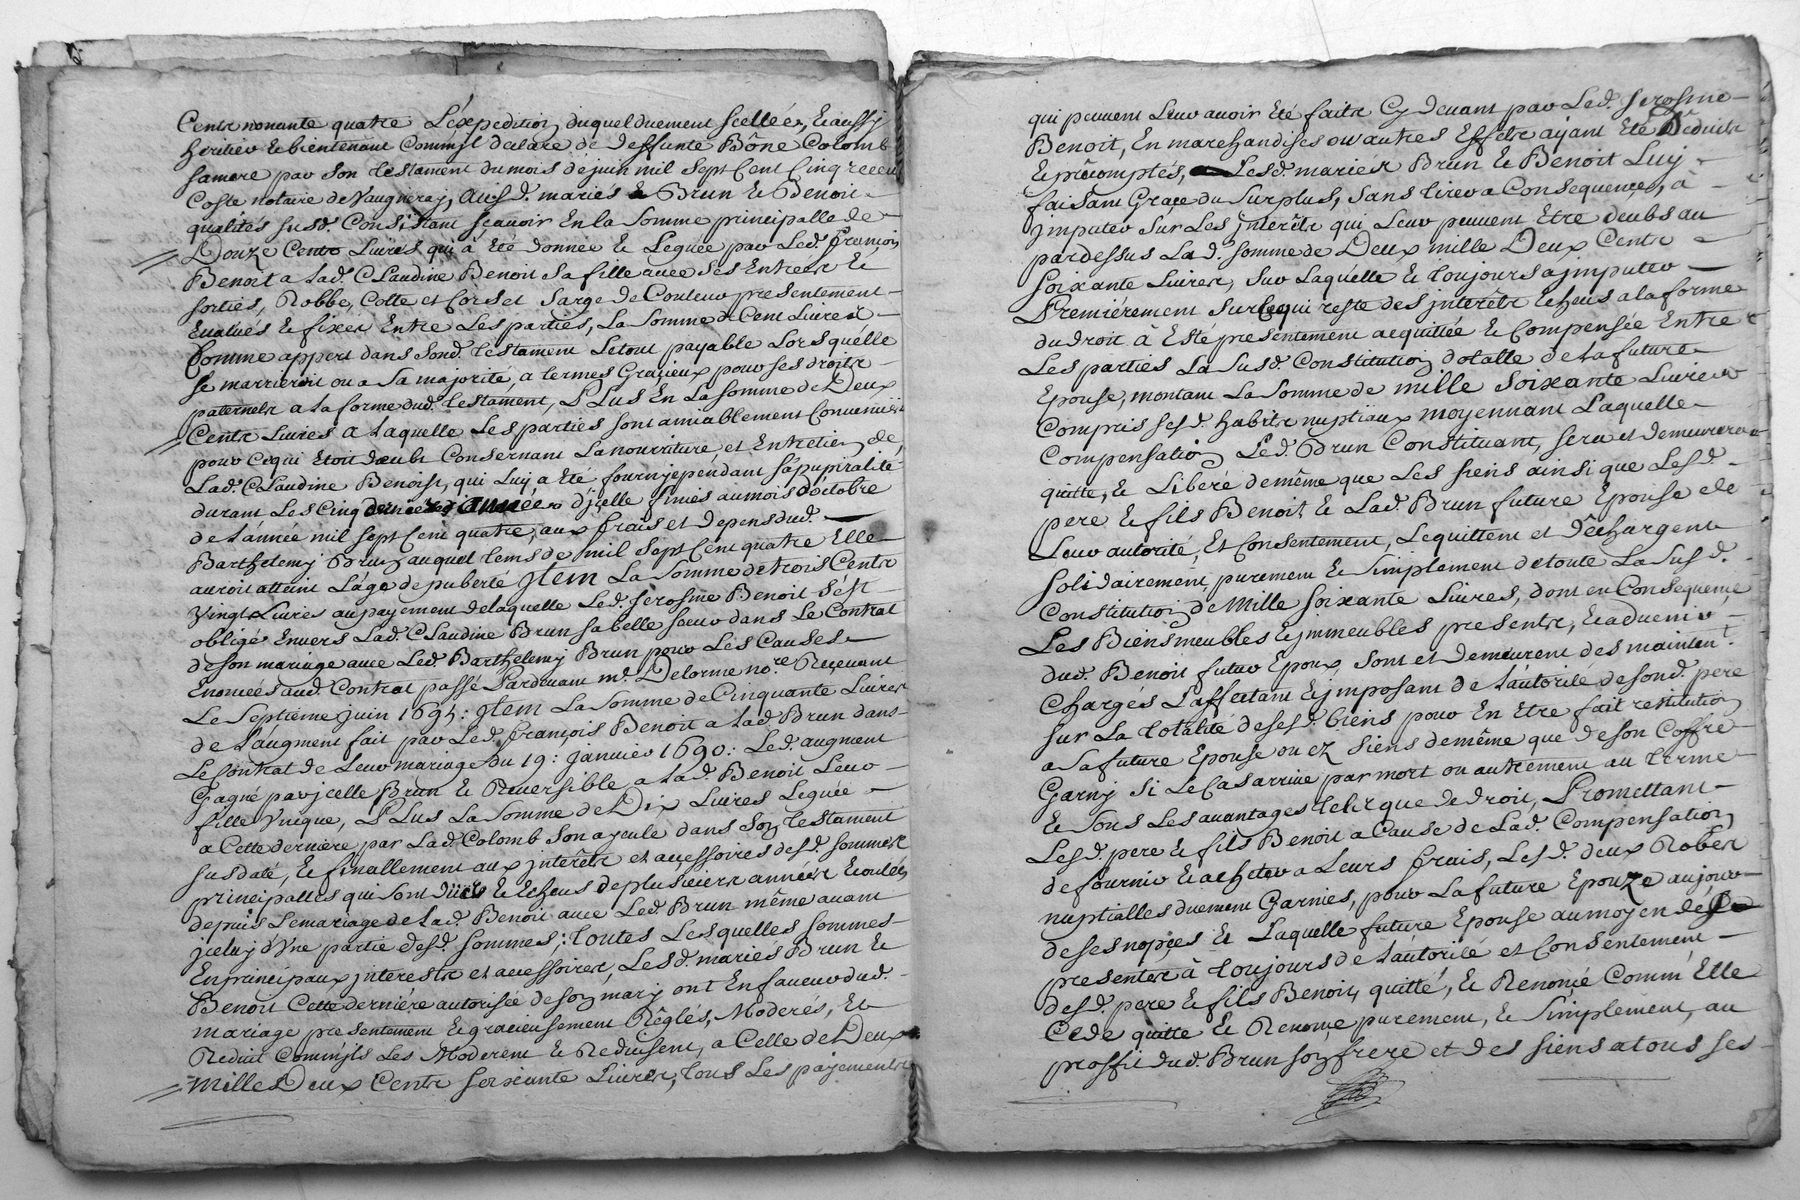 Cents nonante quatre L'éxpedition duquel duement scellée, Et aussy
heritier Et bientenant Comm'jl declare de deffunte Bône Colomb
sa mere par son testament du mois de juin mil Sept Cent Cinq receu
Coste notaire de Vaugneray, Ausd. mariés Brun Et Benoit
qualités susd. Consistant scavoir En la Somme principalle de
Douze Cents Livres qui à été donnée Et Leguée par Led. françois
Benoit a Lad. Claudine Benoit sa fille avec ses Entrées Et
sorties, Robbe, Cotte et Corset sarge de Couleur presentement
Evalués Et fixés Entre Les parties, La somme de Cent Livres
Comme appert dans sond. testament Le tout payable Lorsquélle
se marrieroit ou a sa majorité, a termes Gracieux pour ses droits
paternels a La forme dud. testament, PLus En La somme de Deux
Cents Livres a Laquelle Les parties sont amiablement Convenües
pour Ce qui Etoit deubt Consernant La nourriture, et Entretien de
Lad. Claudine Benoist, qui Luy a Eté fourny pendant sa pupiralité
durant Les Cinq années d'jcelle finies au mois d'octobre
de L'année mil sept Cent quatre, aux frais et depens dud.
Barthelemy Brun auquel tems de mil Sept Cent quatre Elle
auroit atteint L'age de puberté Jtem La Somme de trois Cents
Vingt Livres au payement de laquelle Led. Jerosme Benoit s'ést
obligé Envers Lad. Claudine Brun sa belle sœur dans Le Contrat
de son mariage avec Led. Barthelemy Brun pour Les Causes
Enoncées aud. Contrat passé Pardevant me. Delorme nore. Recevant
Le Septieme juin 1695: Jtem La Somme de Cinquante Livres
de L'augment fait par Led. françois Benoit a Lad. Brun dans
Le Contrat de Leur mariage du 19: janvier 1690: Led. augment
Gagné par jcelle Brun Et Reversible a Lad. Benoit Leur
fille Vnique, PLus La Somme de Dix Livres Leguée
a Cette derniere par Lad. Colomb son ayeule dans son testament
sus daté, Et finallement aux jnterêts et accessoires desd. sommes
principalles qui sont Et Echeus de plusieurs années Ecoulées
depuis Le mariage de Lad. Benoit avec Led. Brun même avant
jceluy d'Vne partie desd. sommes; toutes Lesquelles sommes
En principaux jnterests et accessoires, Lesd. mariés Brun Et
Benoit Cette derniére autorisée de son mary ont En faveur dud.
mariage presentement Et gracieusement Réglés, Moderés, Et
Reduit Comm'jls Les Moderent Et Reduisent, a Celle de Deux
Mille Deux Cents soixante Livres, tous Les payements
qui peuvent Leur avoir Eté faits Cy devant par Led. Jerosme
Benoit, En marchandises ou autres Effets ayant Eté Deduits
Et précomptés, Lesd. mariés Brun Et Benoit Luy
faisant Grace du surplus, sans tirer a Consequence, à
jmputer sur Les jnterêts qui Leur peuvent Etre deubs au
pardessus La d. somme de Deux mille Deux Cents
soixante Livres, sur Laquelle Et toujours a jmputer
Premiérement sur Ce qui reste des jnterêts Echeus a la forme
du droit à Esté presentement acquittée Et Compensée Entre
Les parties La susd. Constitution dotalle de La future
Epouse, montant La somme de mille soixante Livres
Compris sesd. habits nuptiaux moyennant Laquelle
Compensation Led. Brun Constituant, sera et demeurera
quitte, Et Libéré de même que Les siens ainsi que Lesd.
pere Et fils Benoit Et Lad. Brun future Epouse de
Leur autorité, Et Consentement, Le quittent et Déchargent
solidairement purement Et simplement de toute La susd.
Constitution de Mille soixante Livres, dont en Consequence
Les Biens meubles Et jmmeubles presents, Et advenir
dud. Benoit futur Epoux sont et demeurent des maintent.
Chargés L'affectant Et jmposant de L'autorité de sond. pere
sur La totalité de sesd. biens pour En Etre fait restitution
a La future Epouse ou ez siens de même que de son Coffre
Garny si Le Cas arrive par mort ou autrement au terme
Et sous Les avantages tels que de droit, Promettant
Lesd. pere Et fils Benoit a Cause de Lad. Compensation
de fournir Et achetter a Leurs frais, Lesd. deux Robes
nuptialles duement Garnies, pour La future Epouze au jour
de ses nopces Et Laquelle future Epouse au moyen de
presentes à toujours de L'autorité et Consentement
desd. pere Et fils Benoit, quitté, Et Renoncé Comm'Elle
Cede quitte Et Renonce purement, Et simplement, au
proffit dud. Brun son frere et des siens a tous ses